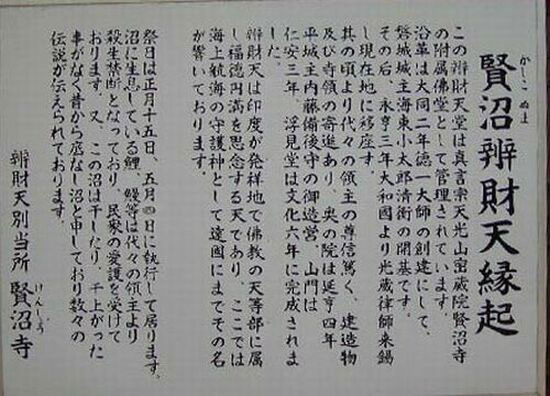 賢沼辨財天縁起
かしこ ぬま
この辨財天堂は真言宗天光山密蔵院賢沼寺
の附属佛堂として管理されています。
沿革は大同二年徳一大師の創建にして、
磐城城主海東小太郎清衡の開基です。
その后、永亨三年大和國より光蔵律師来錫
し現在地に移座す。
其の頃より代々の領主の尊信篤く、建造物
及び寺領の寄進あり、奥の院は延亨四年
平城主内藤備後守の御造営、山門は
仁安三年、浮見堂は文化六年に完成されま
した。
辨財天は印度が発祥地で佛教の天等部に属
し福徳円満を思念する天であり、ここでは
海上航海の守護神として遠國にまでその名
が響いております。
祭日は正月十五日、五月四日に執行して居ります。
沼に生息している鯉、鰻等は代々の領主より
殺生禁断となっており、民家の愛護を受けて
おります。又、この沼は干したり、干上がった
事がなく昔から底なし沼と申しており数々の
伝説が伝えられております。
辨財天別当所 賢沼寺
けんしょう